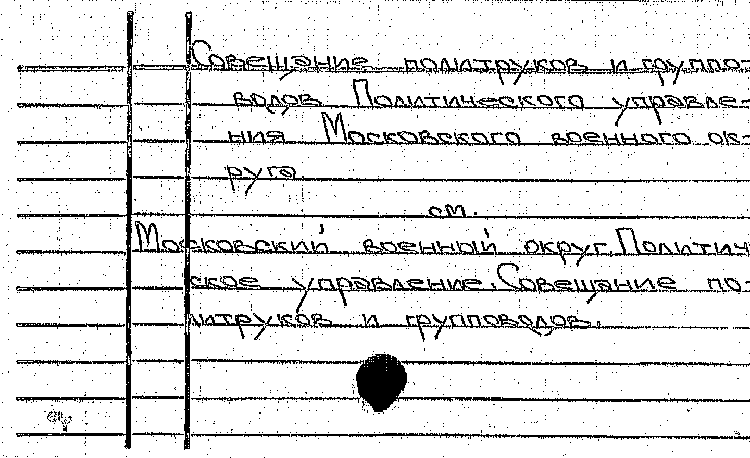 Совещание политруков и группо-
водов Политического управле-
ния Московского военного ок-
руга
см.
Московский военный округ. Политич
ское управление. Совещание по-
литруков и групповодов.